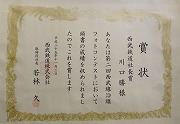 賞状
西武鉄道社長賞
川口勝様
あなたは第二回西武線沿線
フォトコンテストにおいて
頭書の成績を収められまし
たのでこれを賞します
西武鉄道株式会社
取締役社長
若林 久